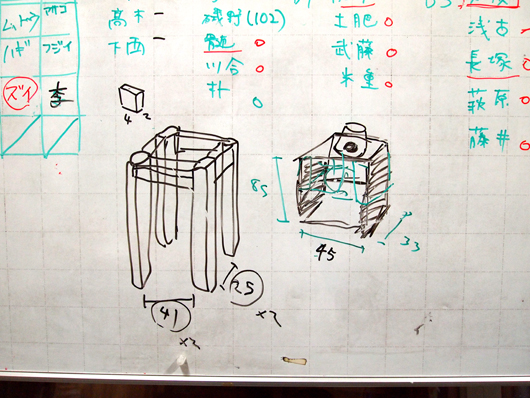 ズイ 李
ハギ フジイ
高木 ー
下西 ー
磯野(102)
川合 ○
朴 ○
土肥 ○
武藤 ○
米重 ○
浅古 ー
長塚
萩原 ○
藤井 ○
4 2
85
45
33
41
×2
25
×2